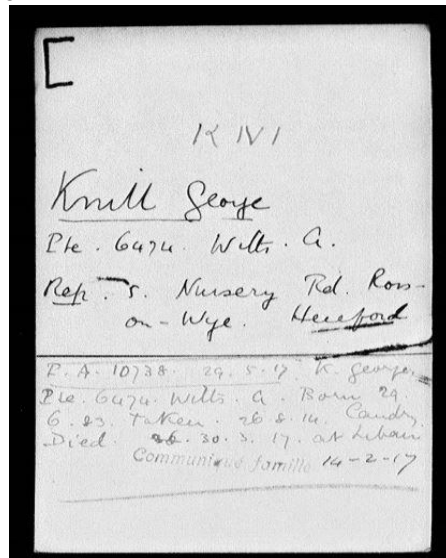 K IVI
Knill George
Pte. 6474. Wilts. A.
Rep. 5. Nursery Rd. Ross-
on-Wye. Hereford
P.A. 10738. 29.5.17. K. George.
Pte. 6474. Wilts. A. Born 29.
6.83. Taken. 26.8.14. Caudry
Died. 30.3.17. at Libau
Communiqué famille 14-2-17